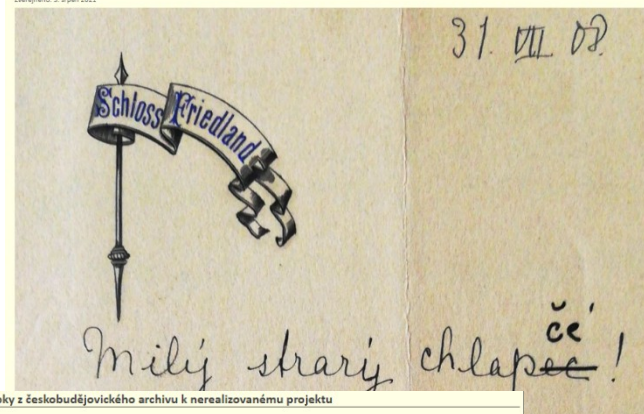 31. VII. 08.
Schloss Friedland
če
Milý strarý chlapec !
z českobudějovického archivu k nerealizovanému projektu